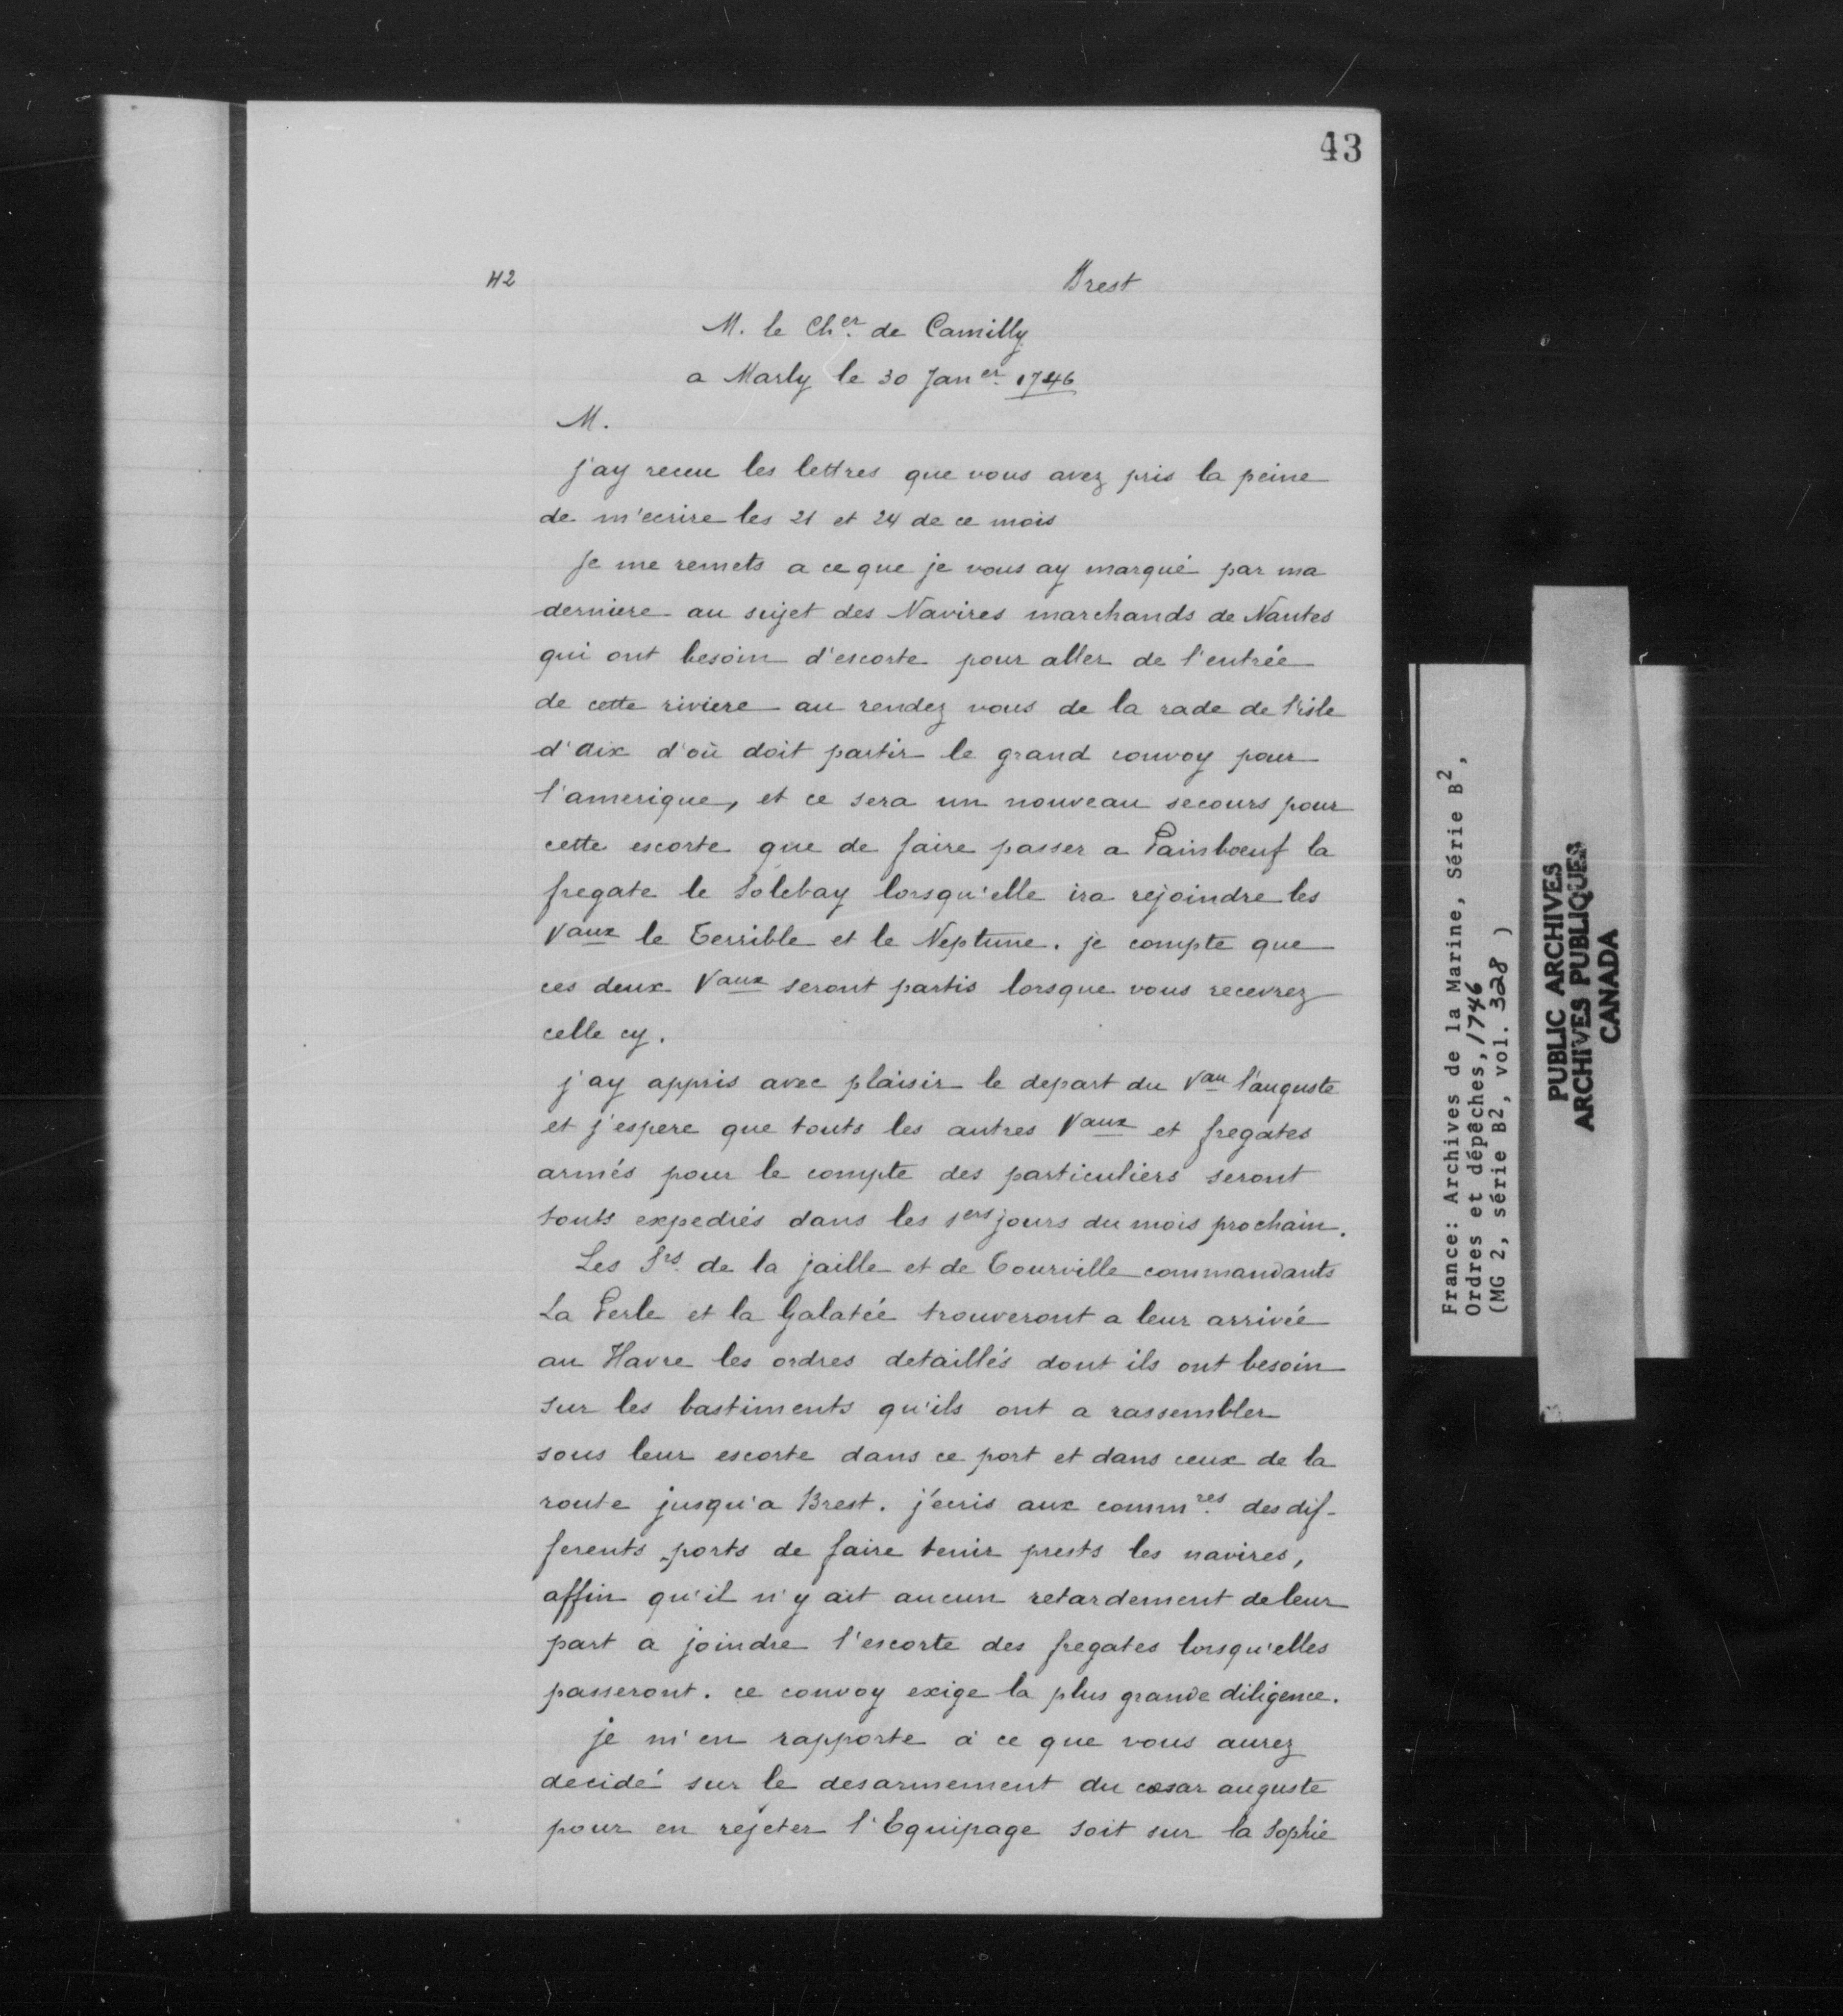 43
42
Brest
M. le Cher. de Camilly
a Marly le 30 Janer. 1746
M.
j'ay receu les lettres que vous avez pris la peine
de m'ecrire les 21 et 24 de ce mois
Je me remets a ce que je vous ay marqué par ma
derniere au sujet des Navires marchands de Nantes
qui ont besoin d'escorte pour aller de l'entrée
de cette riviere au rendez vous de la rade de l'isle
d'aix d'où doit partir le grand convoy pour
l'amerique, et ce sera un nouveau secours pour
cette escorte que de faire passer a Painbœuf la
fregate le Solebay lorsqu'elle ira rejoindre les
Vaux le Terrible et le Neptune. je compte que
ces deux Vaux seront partis lorsque vous recevrez
celle cy.
j'ay appris avec plaisir le depart du Vau l'auguste
et j'espere que touts les autres Vaux et fregates
armés pour le compte des particuliers seront
touts expediés dans les 1ers jours du mois prochain.
Les Srs. de la jaille et de Tourville commandants
La Perle et la Galatée trouveront a leur arrivée
au Havre les ordres detaillés dont ils ont besoin
sur les bastiments qu'ils ont a rassembler
sous leur escorte dans ce port et dans ceux de la
route jusqu'a Brest. j'ecris aux commres. des dif-
ferents ports de faire tenir prests les navires,
affin qu'il n'y ait aucun retardement de leur
part a joindre l'escorte des fregates lorsqu'elles
passeront. ce convoy exige la plus grande diligence.
je m'en rapporte à ce que vous aurez
decidé sur le desarmement du cæsar auguste
pour en rejeter l'Equipage soit sur la Sophie
France: Archives de la Marine, Série B2,
Ordres et dépêches, 1746
(MG 2, série B2, vol. 328 )
PUBLIC ARCHIVES
ARCHIVES PUBLIQUES
CANADA